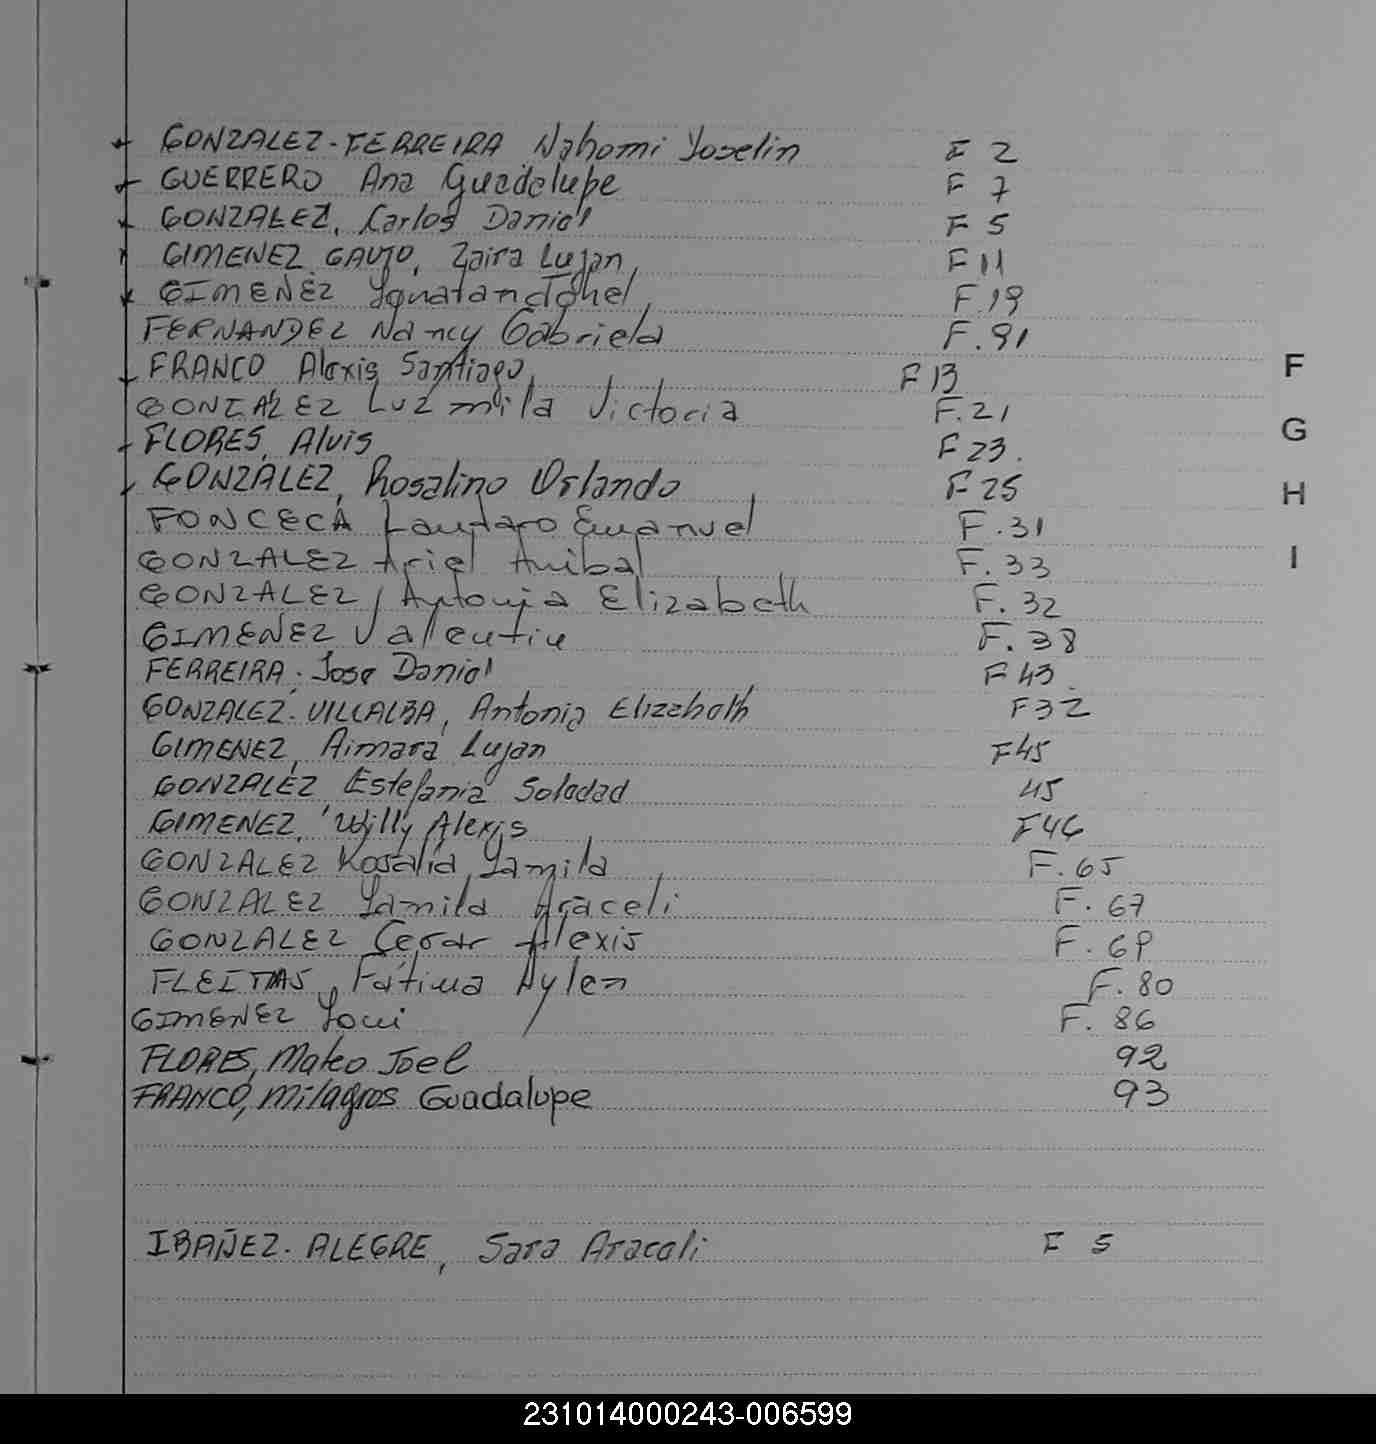 GONZALEZ-FERREIRA Nahomi Yoselin F 2
GUERRERO Ana Guadalupe F 7
GONZALEZ, Carlos Daniel F 5
GIMENEZ GAUTO, Zaira Lujan F 11
GIMENEZ F.19
FERNANDEZ Nancy Gabriela F.91
FRANCO Alexis Santiago F 13
GONZALEZ Luz mila Victoria F.21
FLORES, Alvis F 23.
GONZALEZ, Rosalino Orlando F 25
FONCECA Lautaro Emanuel F.31
GONZALEZ Ariel Anibal F.33
GONZALEZ, Antonia Elizabeth F.32
GIMENEZ Valentin F.38
FERREIRA. Jose Daniel F 43
GONZALEZ-VILLALBA, Antonia Elizabeth F32
GIMENEZ, Aimara Lujan F45
GONZALEZ Estefania Soledad 45
GIMENEZ, Willy Alexis F46
GONZALEZ Rosalia Yamila F.65
GONZALEZ Yamila Araceli F.67
GONZALEZ Cesar Alexis F.69
FLEITAS, Fátima Aylen F.80
GIMENEZ F.86
FLORES, Mateo Joel 92
FRANCO, Milagros Guadalupe 93
IBAÑEZ-ALEGRE, Sara Araceli F 5
F
G
H
I
231014000243-006599